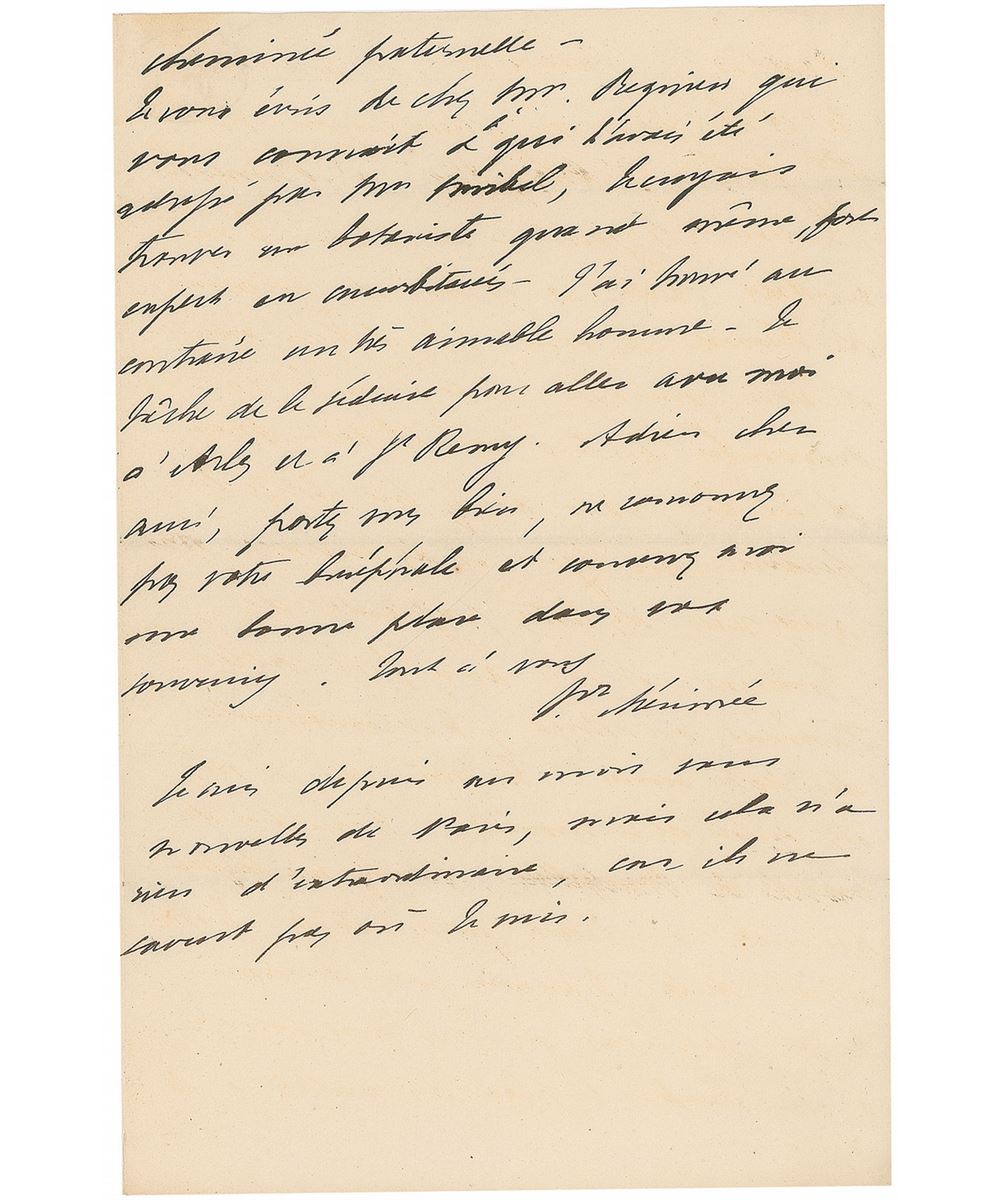 cheminée paternelle –
Je vous écris de chez Mr. Requien qui
vous connait & à qui j'avais été
adressé par Mr Mirbel, Je croyais
trouver un botaniste quand même, fort
expert en cucurbitacés – J'ai trouvé au
contraire un très aimable homme – Je
tâche de le séduire pour aller avec moi
à Arles et à St Remy. Adieu cher
ami, portez vous bien, ne
pas votre et conservez moi
une bonne place dans vos
souvenirs. Tout à vous
Pr Mérimée
Je suis depuis un mois sans
nouvelles de Paris, mais cela n'a
rien d'extraordinaire, car ils ne
savent pas où Je suis.